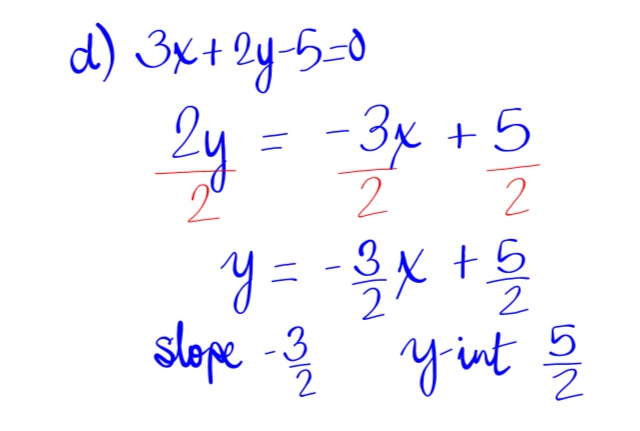 d) 3x+2y-5=0
2y/2 = -3x/2 + 5/2
y = -3/2 x + 5/2
slope -3/2 y-int 5/2